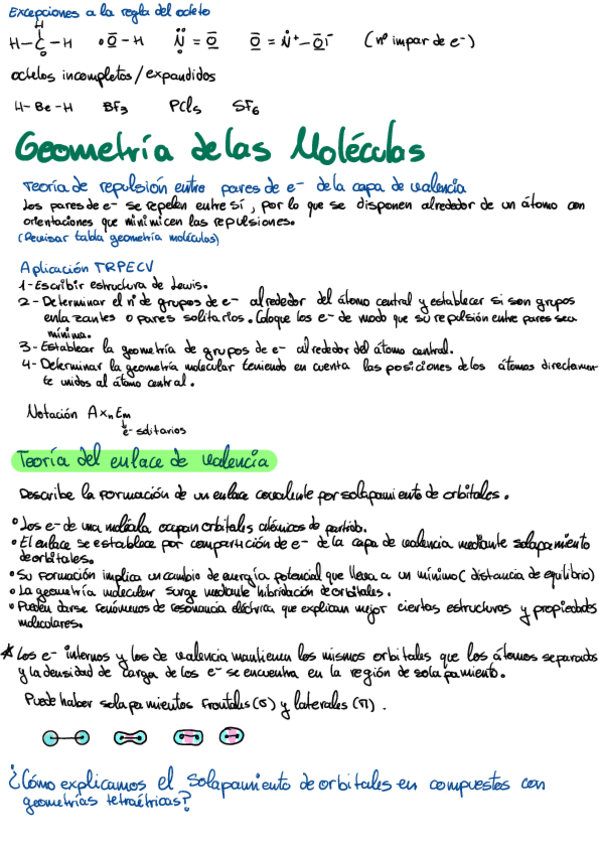 Excepciones a la regla del octeto
H
H-C-H •O-H N=O O=N+-O|- (nº impar de e-)
octetos incompletos/expandidos
H-Be-H BF3 PCl5 SF6
Geometría de las Moléculas
Teoría de repulsión entre pares de e- de la capa de valencia
Los pares de e- se repelen entre sí, por lo que se disponen alrededor de un átomo con
orientaciones que minimicen las repulsiones.
(Revisar tabla geometría moléculas)
Aplicación TRPECV
1-Escribir estructura de Lewis.
2-Determinar el nº de grupos de e- alrededor del átomo central y establecer si son grupos
enlazantes o pares solitarios. Coloque los e- de modo que su repulsión entre pares sea
mínima.
3-Establecer la geometría de grupos de e- alrededor del átomo central.
4-Determinar la geometría molecular teniendo en cuenta las posiciones de los átomos directamen-
te unidos al átomo central.
Notación AXnEm
e- solitarios
Teoría del enlace de valencia
Describe la formación de un enlace covalente por solapamiento de orbitales.
•Los e- de una molécula ocupan orbitales atómicos de partida.
•El enlace se establece por compartición de e- de la capa de valencia mediante solapamiento
de orbitales.
•Su formación implica un cambio de energía potencial que lleva a un mínimo (distancia de equilibrio)
•La geometría molecular surge mediante hibridación de orbitales.
•Pueden darse fenómenos de resonancia eléctrica que explican mejor ciertas estructuras y propiedades
moleculares.
*Los e- internos y los de valencia mantienen los mismos orbitales que los átomos separados
y la densidad de carga de los e- se encuentra en la región de solapamiento.
Puede haber solapamientos frontales (σ) y laterales (π).
¿Cómo explicamos el solapamiento de orbitales en compuestos con
geometrías tetraétricas?